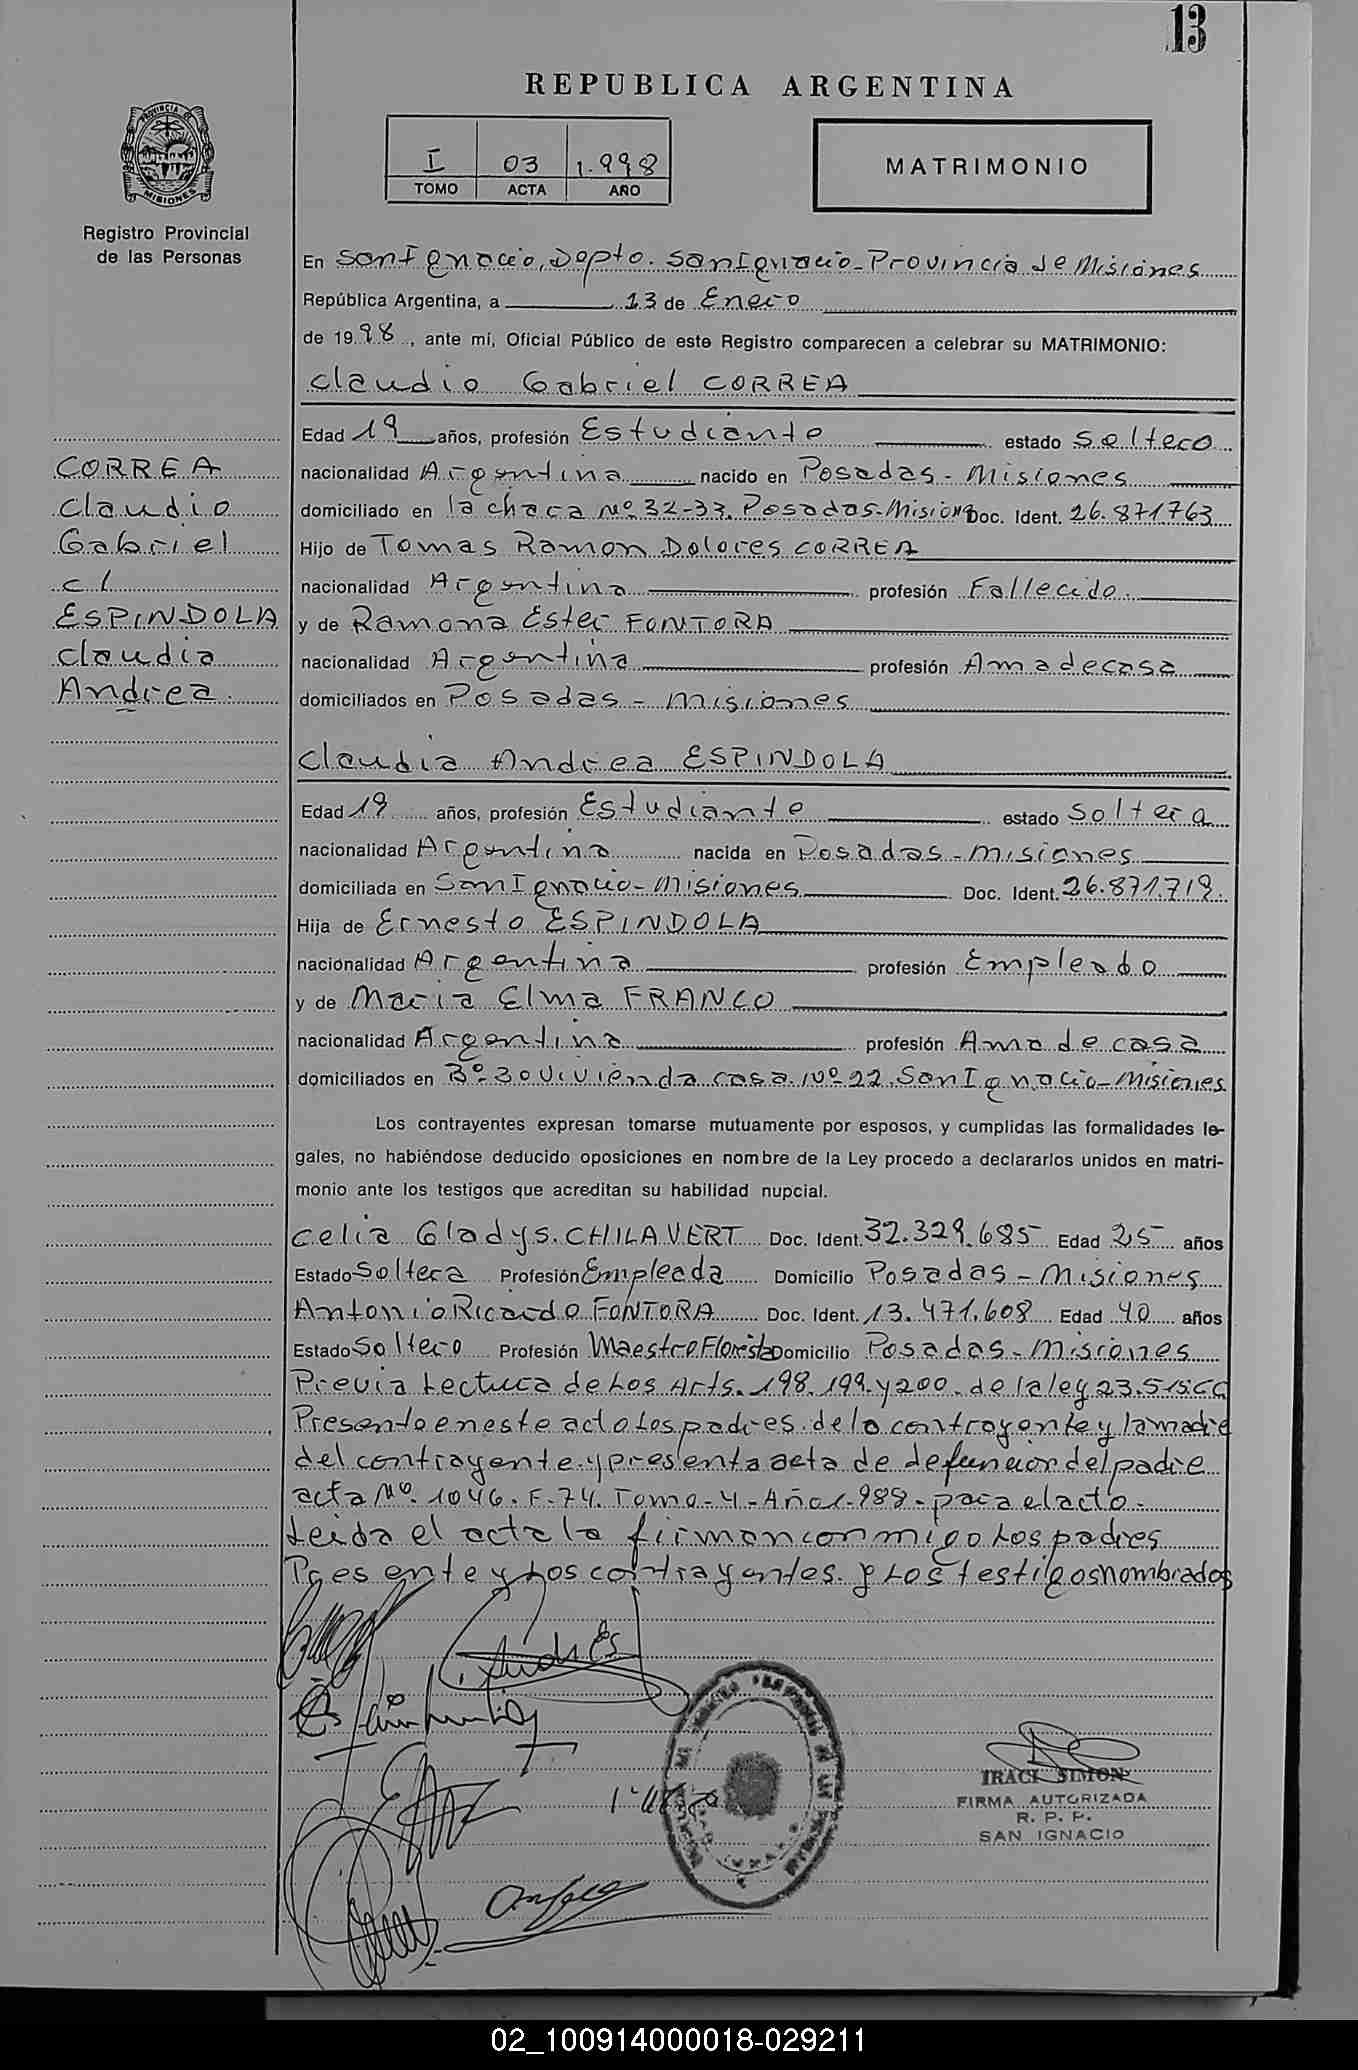 13
REPUBLICA ARGENTINA
PROVINCIA DE
MISIONES
Registro Provincial
de las Personas
I 03 1.998
TOMO ACTA AÑO
MATRIMONIO
En San Ignacio, Dpto. San Ignacio - Provincia de Misiones
República Argentina, a 13 de Enero
de 1998, ante mí, Oficial Público de este Registro comparecen a celebrar su MATRIMONIO:
Claudio Gabriel CORREA
Edad 19 años, profesión Estudiante estado soltero
nacionalidad Argentina nacido en Posadas - Misiones
domiciliado en la chacra Nº 32-33. Posadas-Misiones Doc. Ident. 26.871763
Hijo de Tomas Ramon Dolores CORREA
nacionalidad Argentina profesión Fallecido.
y de Ramona Ester FONTORA
nacionalidad Argentina profesión Ama de casa
domiciliados en Posadas - Misiones
CORREA
Claudio
Gabriel
c/
ESPINDOLA
Claudia
Andrea.
Claudia Andrea ESPINDOLA
Edad 19 años, profesión Estudiante estado soltera
nacionalidad Argentina nacida en Posadas - Misiones
domiciliada en San Ignacio - Misiones Doc. Ident. 26.871.719.
Hija de Ernesto ESPINDOLA
nacionalidad Argentina profesión Empleado
y de Maria Elma FRANCO
nacionalidad Argentina profesión Ama de casa
domiciliados en Bº 30 vivienda casa Nº 22. San Ignacio - Misiones
Los contrayentes expresan tomarse mutuamente por esposos, y cumplidas las formalidades le-
gales, no habiéndose deducido oposiciones en nombre de la Ley procedo a declararlos unidos en matri-
monio ante los testigos que acreditan su habilidad nupcial.
Celia Gladys CHILAVERT Doc. Ident. 32.329.685 Edad 25 años
Estado Soltera Profesión Empleada Domicilio Posadas - Misiones
Antonio Ricardo FONTORA Doc. Ident. 13.471.608 Edad 40 años
Estado Soltero Profesión Maestro Florista Domicilio Posadas - Misiones
Previa Lectura de Los Arts. 198. 199. y 200. de la ley 23.515CC
Presente en este acto Los padres de la contrayente y la madre
del contrayente y presenta acta de defuncion del padre
acta Nº 1046. F. 74. Tomo - 4 - Año 1.989 - para el acto.
Leida el acta la firman conmigo Los padres
Presente y Los contrayentes y Los testigos nombrados
IRACI SIMON
FIRMA AUTORIZADA
R. P. P.
SAN IGNACIO
02_100914000018-029211